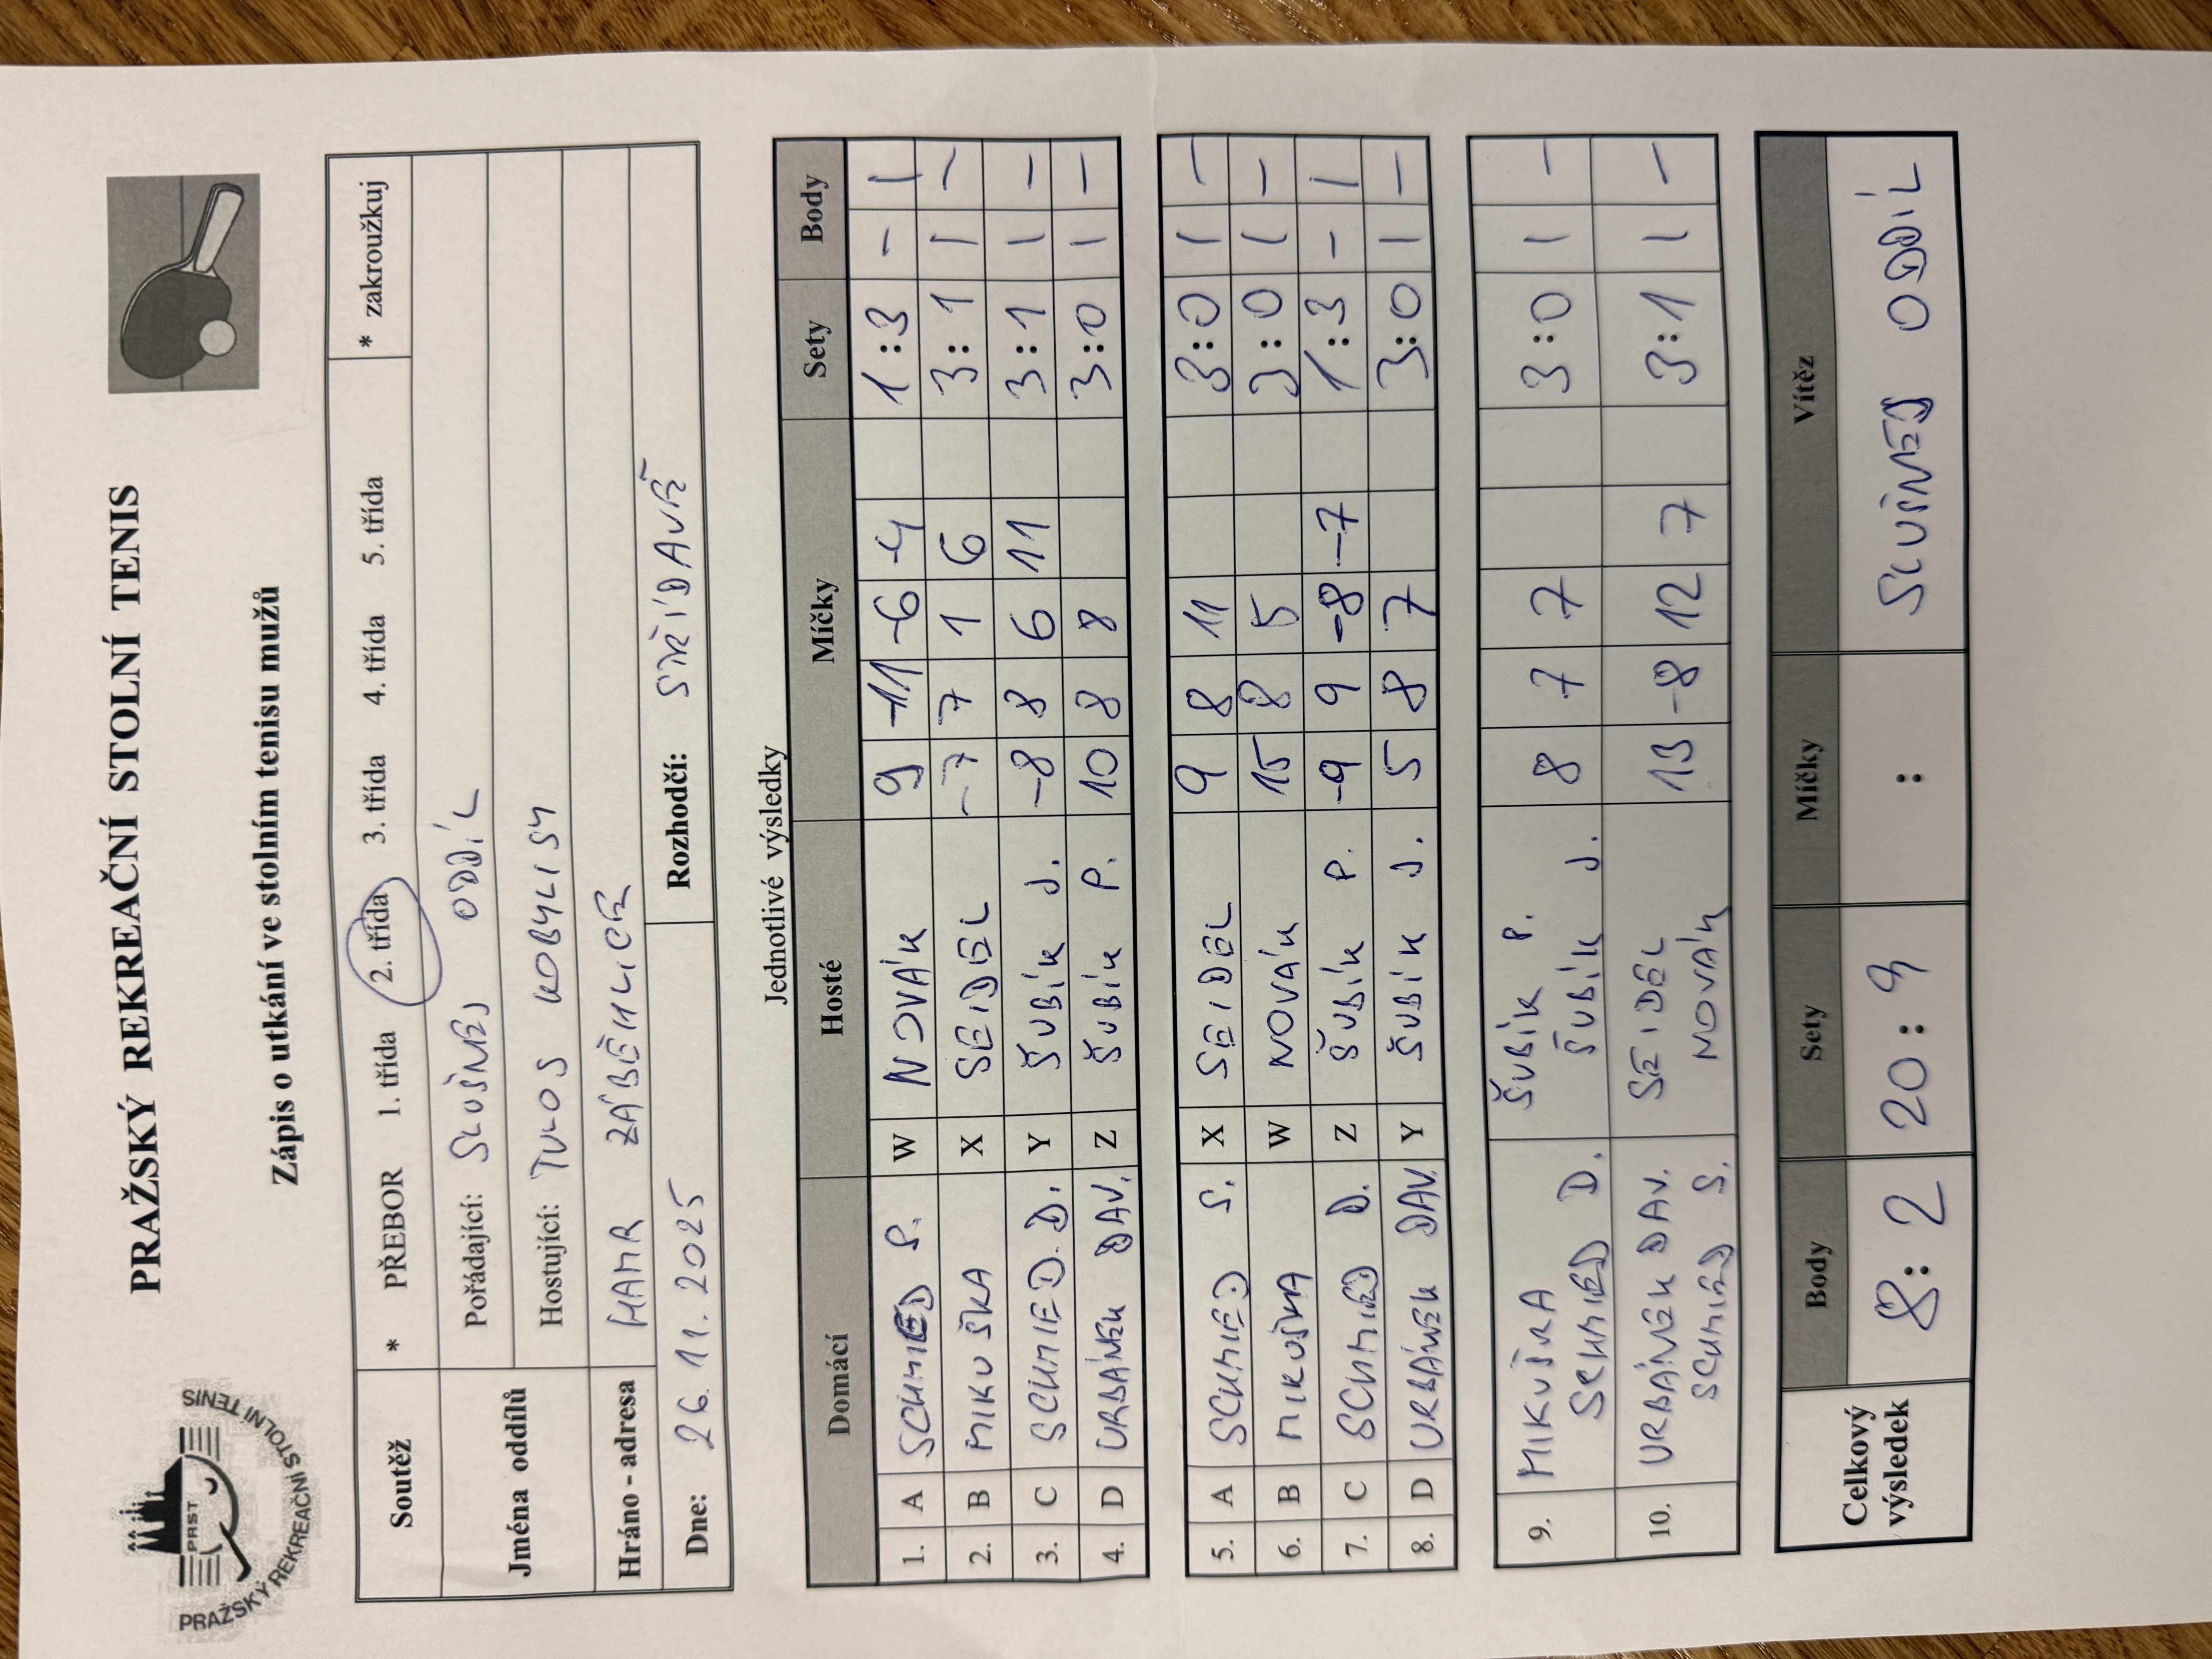 PRAŽSKÝ REKREAČNÍ STOLNÍ TENIS
PRST
PRAŽSKÝ REKREAČNÍ STOLNÍ TENIS
Zápis o utkání ve stolním tenisu mužů
Soutěž * PŘEBOR 1. třída 2. třída 3. třída 4. třída 5. třída * zakroužkuj
Jména oddílů Pořádající: SLUŠNEJ ODDÍL
Hostující: TULOS KOBYLISY
Hráno - adresa HAMR ZÁBĚHLICE
Dne: 26.11.2025 Rozhodčí: STŘÍDAVĚ
Jednotlivé výsledky
Domácí Hosté Míčky Sety Body
1. A SCHMIED S. W NOVÁK 9 -11 -6 -4 1:3 - 1
2. B MIKUŠKA X SEIDEL -7 7 1 6 3:1 1 -
3. C SCHMIED. D. Y ŠUBÍK J. -8 8 6 11 3:1 1 -
4. D URBÁNEK DAV. Z ŠUBÍK P. 10 8 8 3:0 1 -
5. A SCHMIED S. X SEIDEL 9 8 11 3:0 1 -
6. B MIKUŠKA W NOVÁK 15 8 5 3:0 1 -
7. C SCHMIED D. Z ŠUBÍK P. -9 9 -8 -7 1:3 - 1
8. D URBÁNEK DAV. Y ŠUBÍK J. 5 8 7 3:0 1 -
9. MIKUŠKA ŠUBÍK P. 8 7 7 3:0 1 -
SCHMIED D. ŠUBÍK J.
10. URBÁNEK DAV. SEIDEL 13 -8 12 7 3:1 1 -
SCHMIED S. NOVÁK
Celkový výsledek Body Sety Míčky Vítěz
8:2 20:9 : SLUŠNEJ ODDÍL